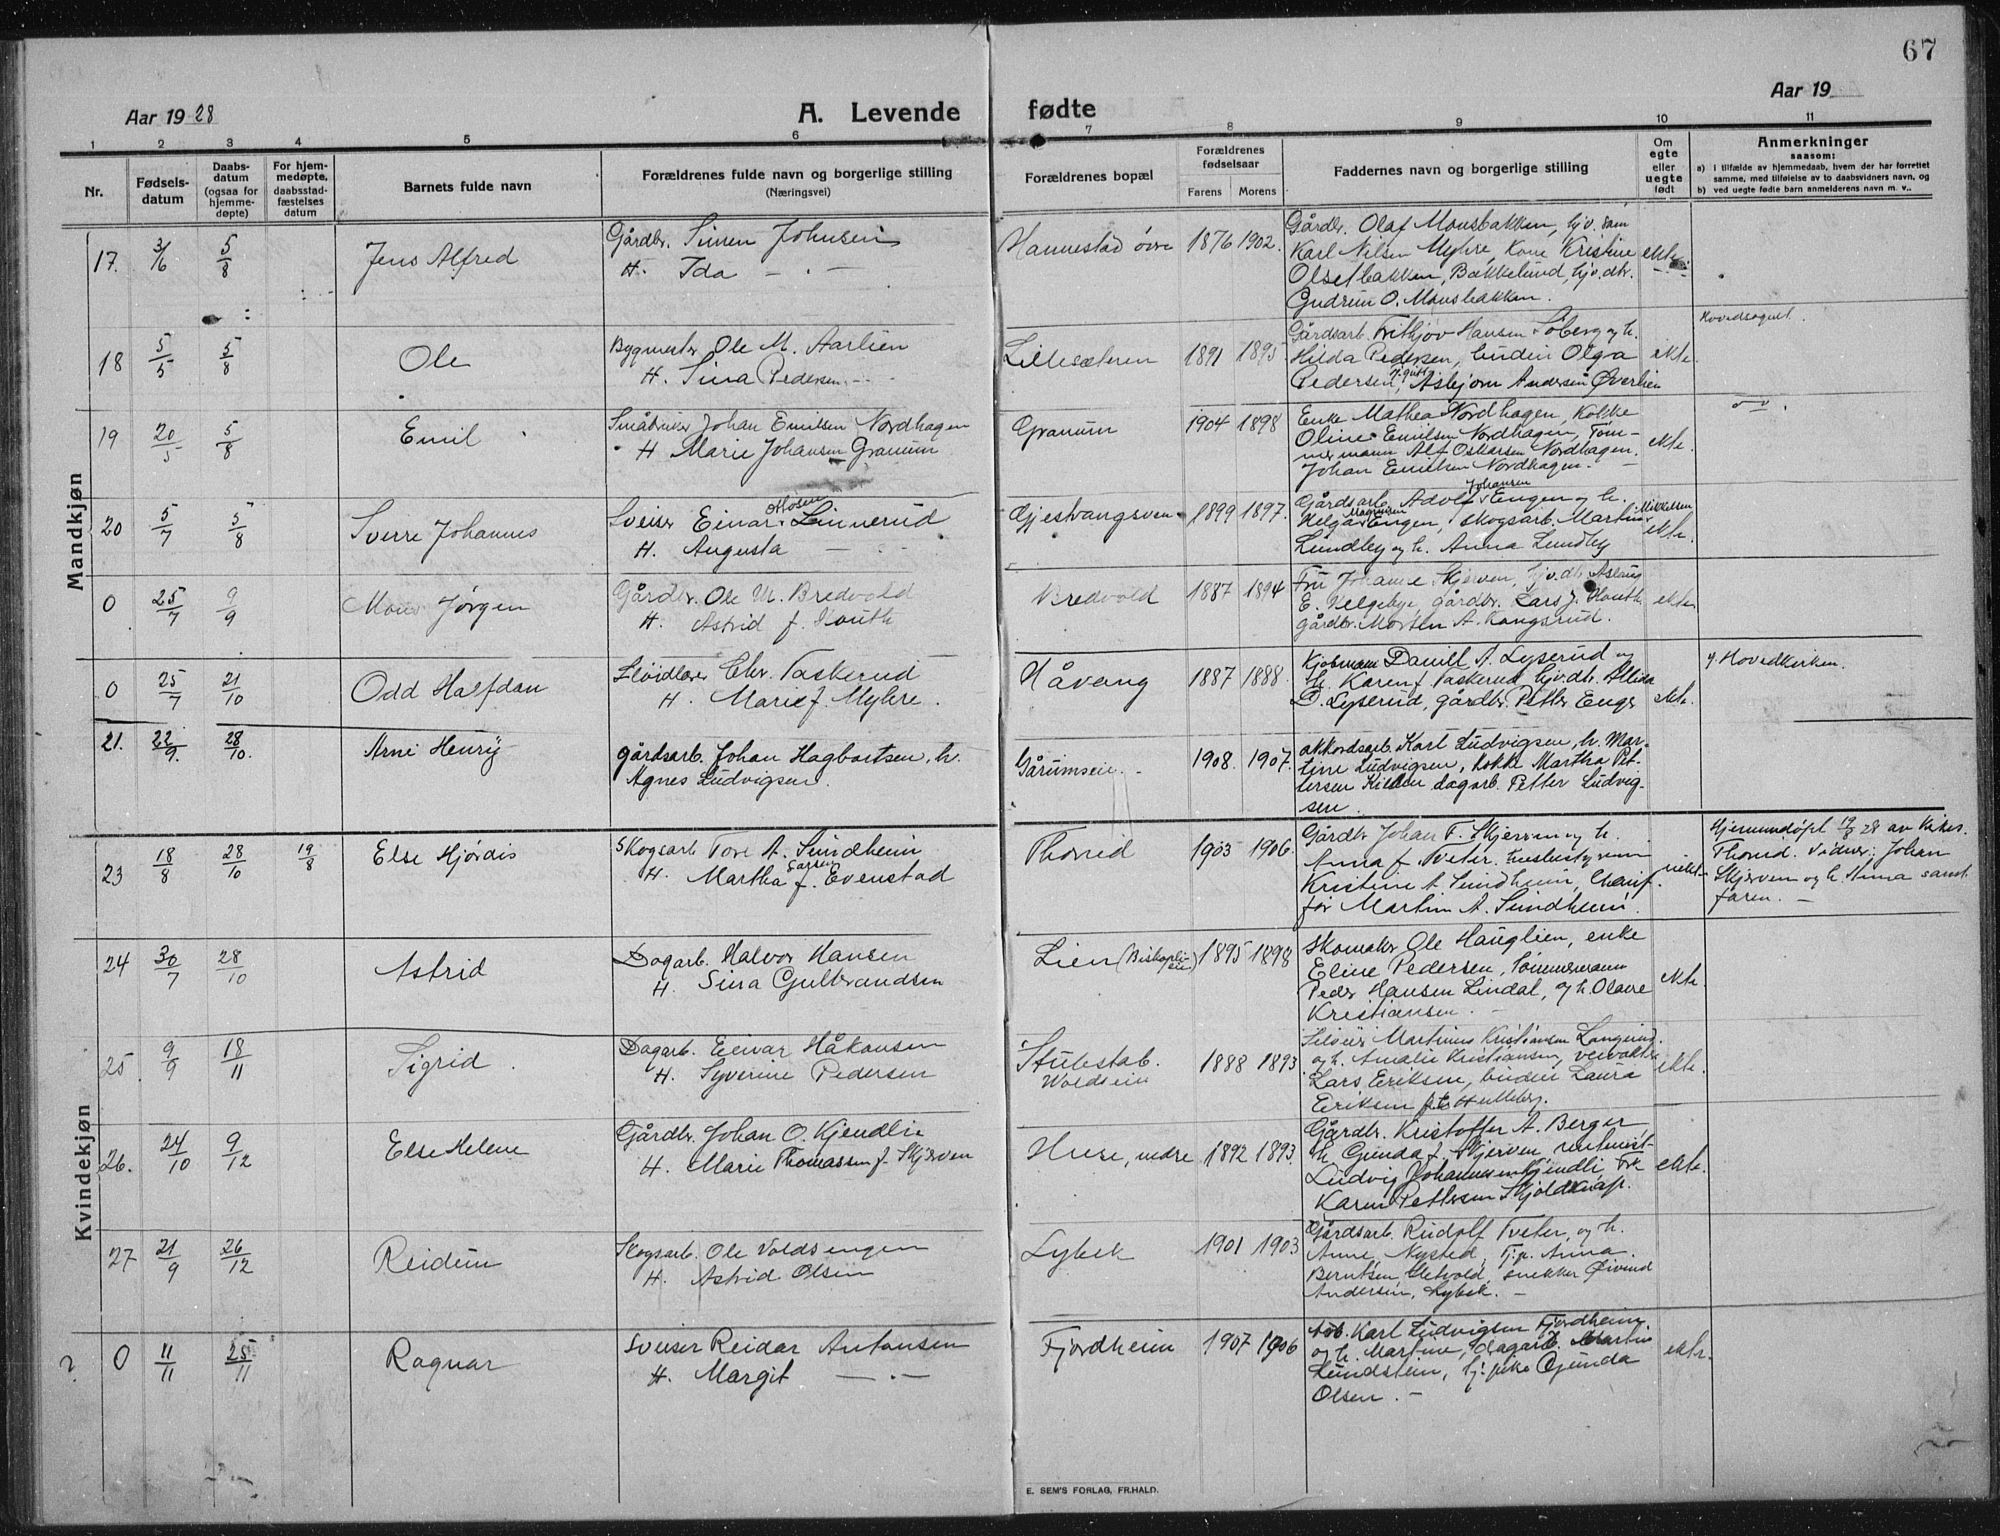 67
Aar 19 28
A. Levende fødte
Aar 19
1 2 3 4 5 6 7 8 9 10 11
Nr.
Fødsels-
datum
Daabs-
datum
(ogsaa for
hjemme-
døpte)
For hjem-
medøpte,
daabsstad-
fæstelses
datum
Barnets fulde navn
Forældrenes fulde navn og borgerlige stilling
(Næringsvei)
Forældrenes bopæl
Forældrenes
fødselsaar
Farens Morens
Faddernes navn og borgerlige stilling
Om
egte
eller
uegte
født
Anmerkninger
saasom:
a) i tilfælde av hjemmedaab, hvem der har forrettet
samme, med tilføielse av to daabsvidners navn, og
b) ved uegte fødte barn anmelderens navn m. v..
Mandkjøn
17. 3/6 5/8 Jens Alfred
Gårdbr. Simen Johnsen
H. Ida — . —
Hannestad øvre 1876 1902.
Gårdbr. Olaf Monsbakken, hjv. søn
Karl Nilsen Myhre, Kone Kristine
Olsetbakken, Bakkelund, hjv. dtr.
Gudrun O. Monsbakken.
ekte
18 5/5 5/8 Ole
Bygmester Ole M. Aarlien
H. Sina Pedersen
Lillesæteren 1891 1895
Gårdsarb. Frithjov Hansen Soberg og h.
Hilda Pedersen, budeie Olga
Pedersen, Asbjørn Andersen Øverlien
ekte
Hovedsognet.
19 20/5 5/8 Emil
Småbruker Johan Emilsen Nordhagen
H Marie Johansen Granum
Granum 1904 1898
Enke Mathea Nordhagen, Kokke
Oline Emilsen Nordhagen, Tøm-
mermann Alf Oskarsen Nordhagen.
Johan Emilsen Nordhagen. —
ekte.
20 5/7 5/8 Sverre Johannes
Sveiser Einar Ottosen Linnerud
H. Augusta —
Gjestvangsven 1899 1897.
Gårdsarb. Adolf Johansen Engen og h.
Helga Magnusen Engen, skogsarb. Martin Mikkelsen
Lundby og h. Anna Lundby
ekte.
0 25/7 9/9 Mons Jørgen
Gårdbr. Ole M. Bredvold
H. Astrid f. Houth
Bredvold 1887 1894
Fru Johanne Skjerven, hjv. dtr. Aslaug
E. Helgebye, gårdbr. Lars J. Houth
gårdbr. Morten A. Kongsrud.
ekte
0 25/7 21/10 Odd Halfdan
Sløidlærer Chr. Taskerud
H. Marie f. Myhre.
Håvang 1887 1888.
Kjøbmann Daniel A. Lyserud og
h. Karen f. Taskerud hjv. dtr. Allida
D. Lyserud, gårdbr. Petter Enger
ekte.
i Hovedkirken.
21. 22/9. 28/10. Arne Henry
gårdsarb. Johan Hagbartsen, h.
Agnes Ludvigsen.
Gårumseie. 1908. 1907.
akkordsarb. Karl Ludvigsen, h. Mar-
tine Ludvigsen, kokke Martha Pet-
tersen Kilden dagarb. Petter Ludvig-
sen.
Kvindekjøn
23 18/8 28/10 19/8 Else Hjørdis
Skogsarb Tore A. Sundheim
H. Martha Larsen f. Evenstad
Thorud 1903 1906.
Gårdbr Johan F. Skjerven og h.
Anna f Tveter. husbestyrerin
Kristine A. Sundheim, Chauf
før Martin A. Sundheim.
Hjemmedøpt 19/8 28 av
Thorud. Vidner: Johan
Skjerven og h. Anna samt
faren. —
24 30/7 28/10 Astrid
Dagarb. Halvor Hansen
H. Sina Gulbrandsen
Lien 1895 1898
Skomaker Ole Hauglien, enke
Eline Pedersen, Tømmermann
Peder Hansen Lindal, og h. Olave
Kristiansen. —
ekte.
25. 9/9 18/11 Sigrid
Dagarb. Einar Håkonsen
H. Syverine Pedersen
Stubestab.
Woldseie
1888 1893.
Martinus Kristiansen
og h. Amalie Kristiansen, veivokter
Lars Eriksen, budeie Laura
Eriksen
ekte.
26. 24/10 9/12 Else Helene
Gårdbr. Johan O. Kjendlie
H. Marie Thomassen f. Skjerven
Huse, nedre 1892 1893.
Gårdbr. Kristoffer A. Berger
h. Gunda f. Skjerven,
Ludvig Johannessen Kjendli, Frk
Karen Pettersen Skjoldknap.
ekte.
27 21/9 26/12 Reidun
Skogsarb. Ole Voldsengen
H. Astrid Olsen
Lybek 1901 1903
Gårdsarb. Rudolf Tveter, og h.
Anne Nysted, Tj.p. Anna
Berntsen, snekker Øivind
Andersen, Lybek. —
? 0 11/11 25/11 Ragnar
Sveiser Reidar Antonsen
H. Margit — . —
Fjordheim 1907 1906
Arb. Karl Ludvigsen Fjordheim,
og h. Martine, dagarb. Martin
Lundstein, tj. pike Gunda
Olsen. —
ekte.
E. SEM'S FORLAG, FR.HALD.